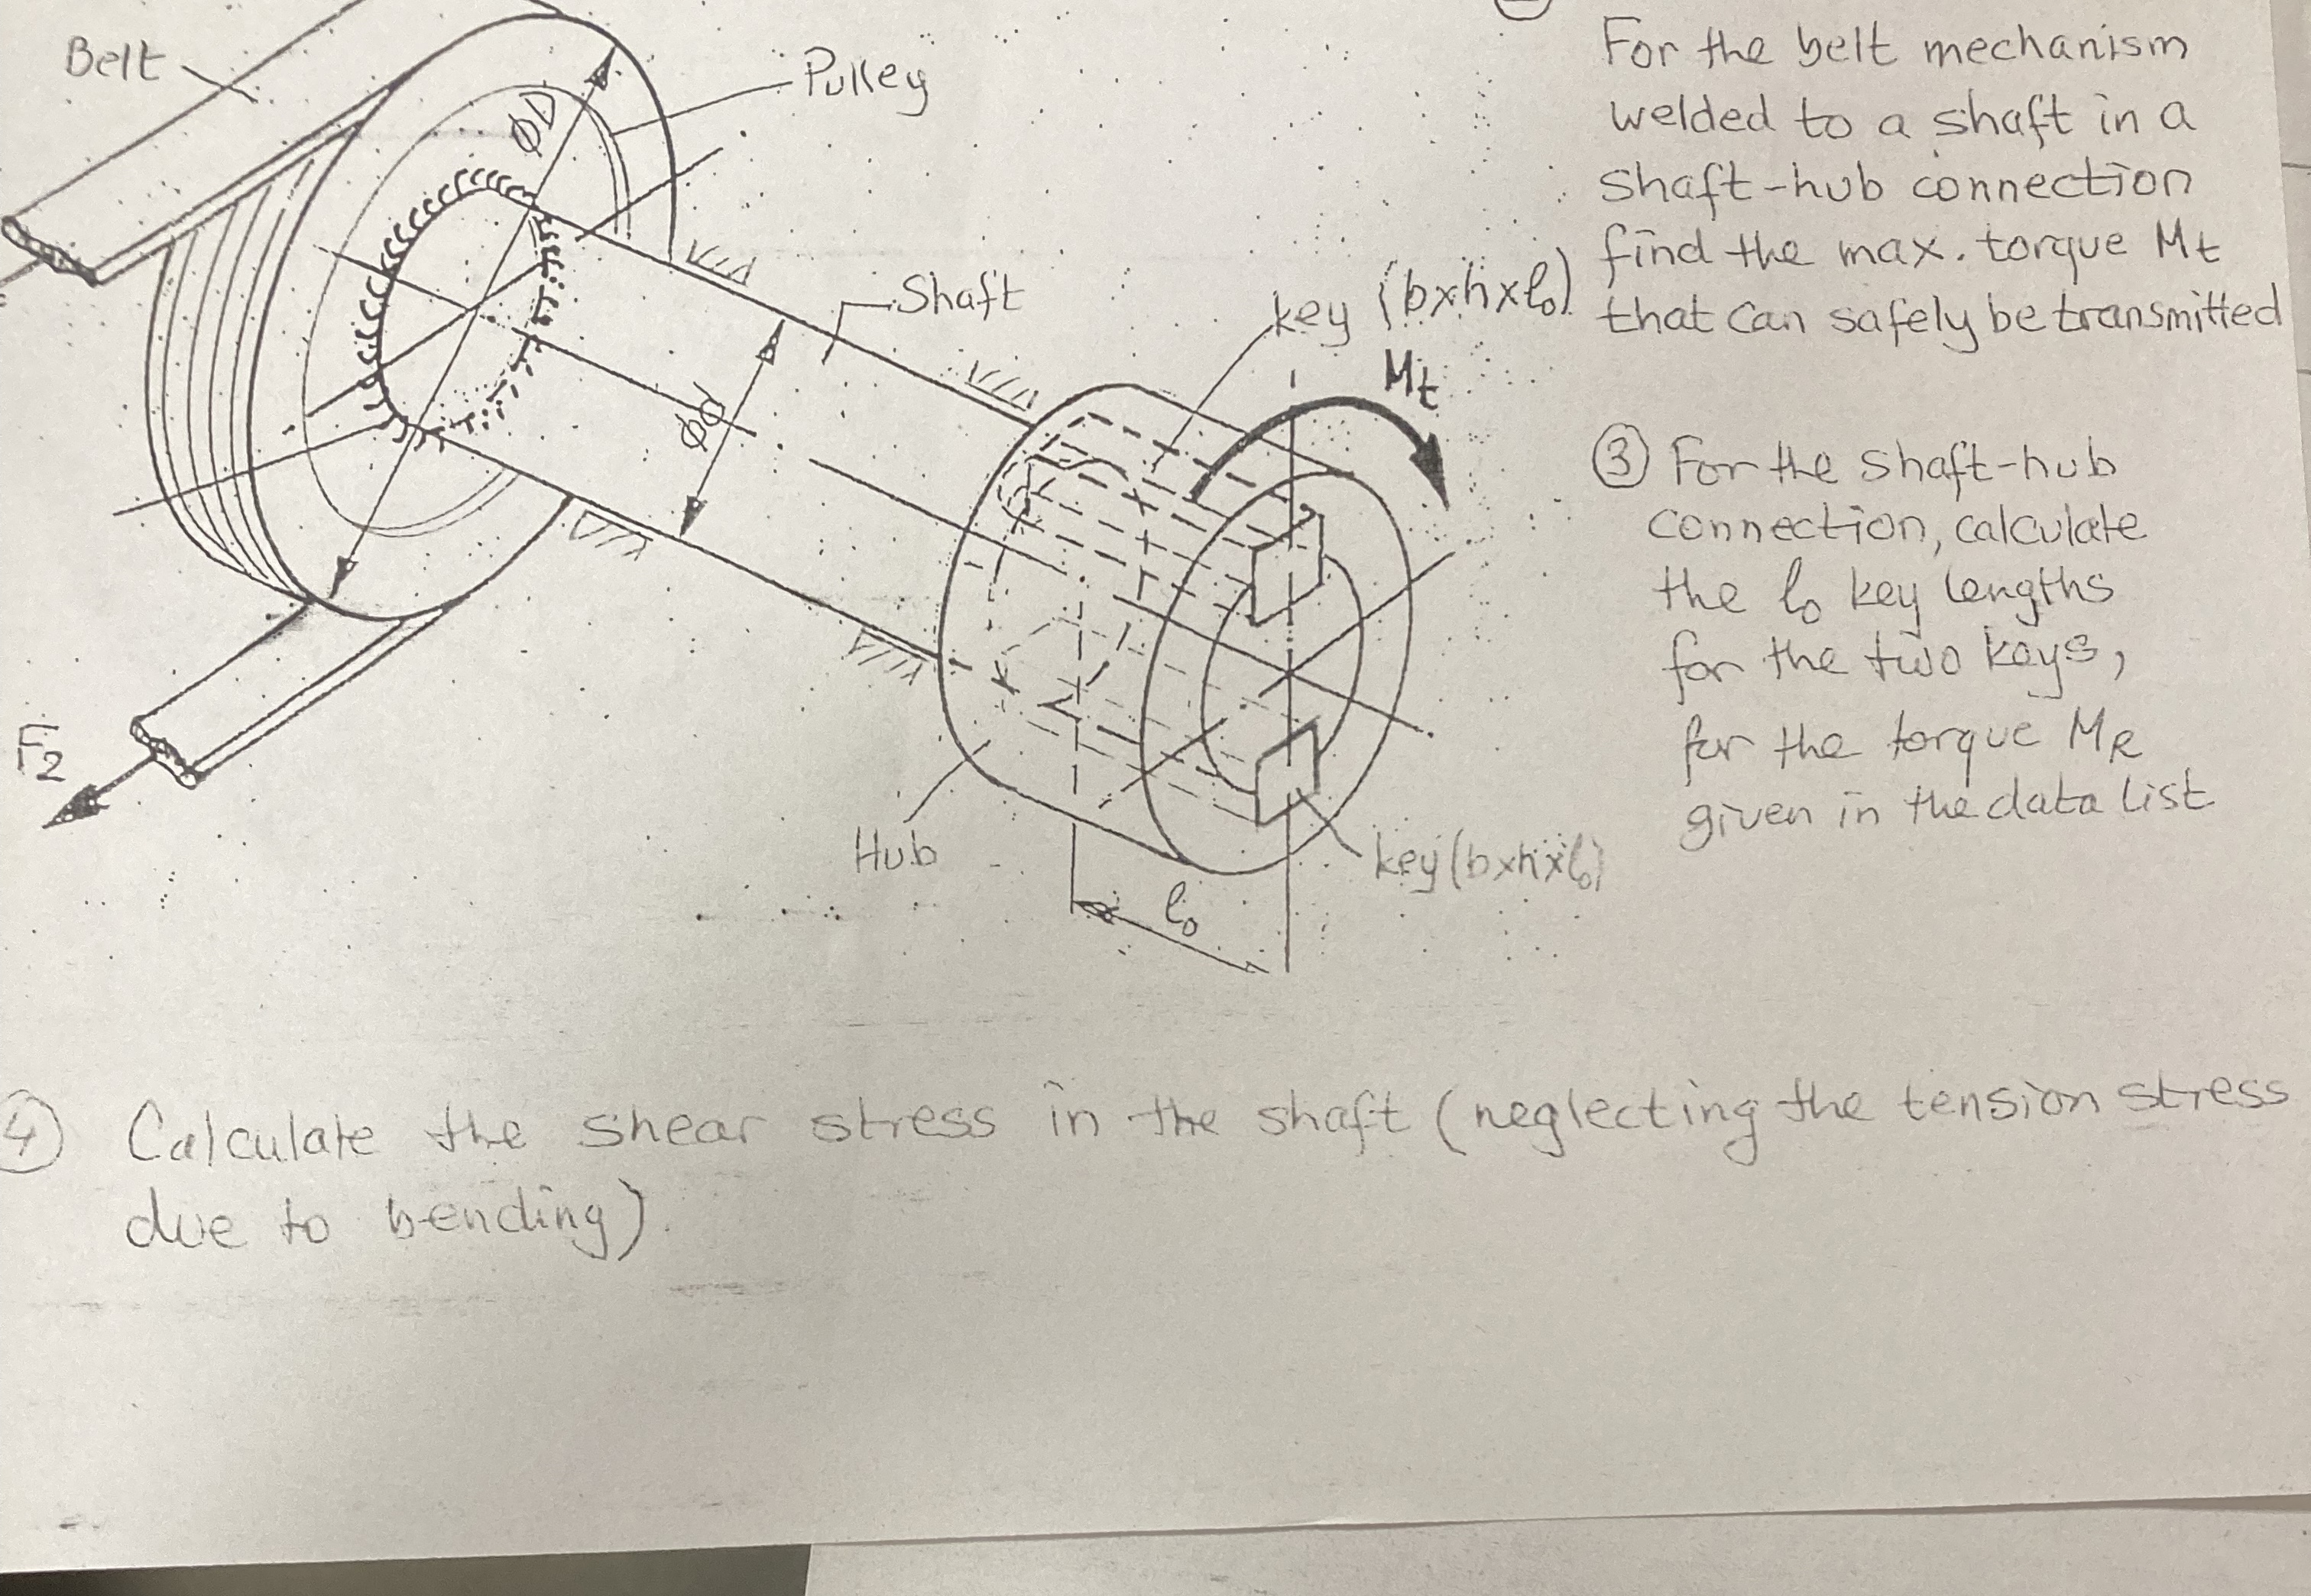 Belt
ØD
Pulley
Shaft
Ød
key (bxhxl₀)
Mt
F2
Hub
key (bxhxl₀)
l₀
For the belt mechanism
welded to a shaft in a
shaft-hub connection
find the max. torque Mt
that can safely be transmitted
③ For the shaft-hub
connection, calculate
the l₀ key lengths
for the two keys,
for the torque MR
given in the data list
④ Calculate the shear stress in the shaft (neglecting the tension stress
due to bending).